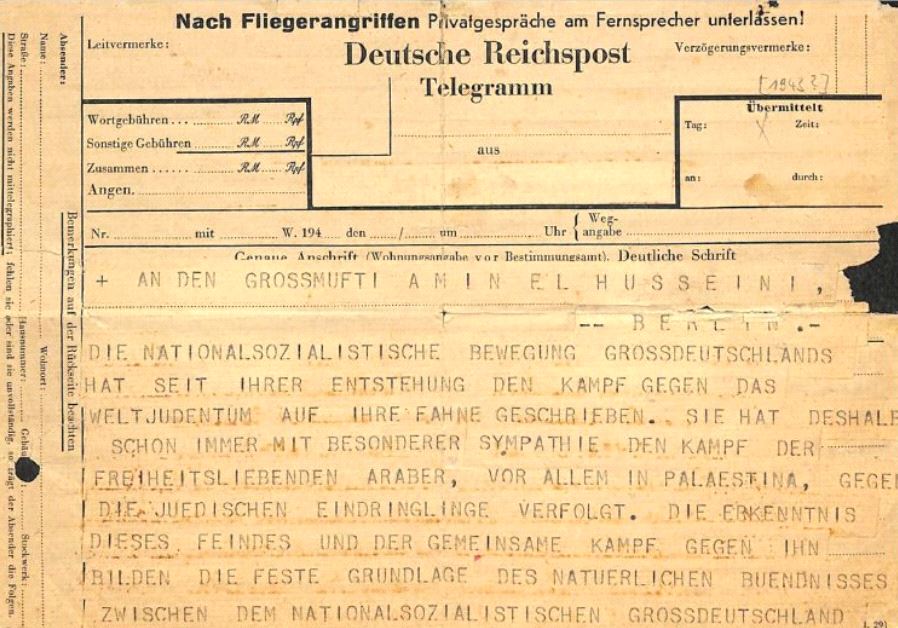 Nach Fliegerangriffen Privatgespräche am Fernsprecher unterlassen!
Leitvermerke:
Deutsche Reichspost
Verzögerungsvermerke:
Telegramm
[1943?]
Wortgebühren . . . RM Rpf
Sonstige Gebühren RM Rpf
Zusammen RM Rpf
Angen.
aus
Übermittelt
Tag: Zeit:
an: durch:
Nr. mit W. 194 den / um Uhr { Weg-
angabe
Genaue Anschrift (Wohnungsangabe vor Bestimmungsamt). Deutliche Schrift
+ AN DEN GROSSMUFTI AMIN EL HUSSEINI,
-- BERLIN .-
DIE NATIONALSOZIALISTISCHE BEWEGUNG GROSSDEUTSCHLANDS
HAT SEIT IHRER ENTSTEHUNG DEN KAMPF GEGEN DAS
WELTJUDENTUM AUF IHRE FAHNE GESCHRIEBEN. SIE HAT DESHALB
SCHON IMMER MIT BESONDERER SYMPATHIE DEN KAMPF DER
FREIHEITSLIEBENDEN ARABER, VOR ALLEM IN PALAESTINA, GEGEN
DIE JUEDISCHEN EINDRINGLINGE VERFOLGT. DIE ERKENNTNIS
DIESES FEINDES UND DER GEMEINSAME KAMPF GEGEN IHN
BILDEN DIE FESTE GRUNDLAGE DES NATUERLICHEN BUENDNISSES
ZWISCHEN DEM NATIONALSOZIALISTISCHEN GROSSDEUTSCHLAND
Bemerkungen auf der Rückseite beachten
Absender:
Name: Wohnort:
Straße: Hausnummer: Gebäu Stockwerk
Diese Angaben werden nicht mittelegraphiert; fehlen sie oder sind sie unvollständig, so trägt der Absender die Folgen.